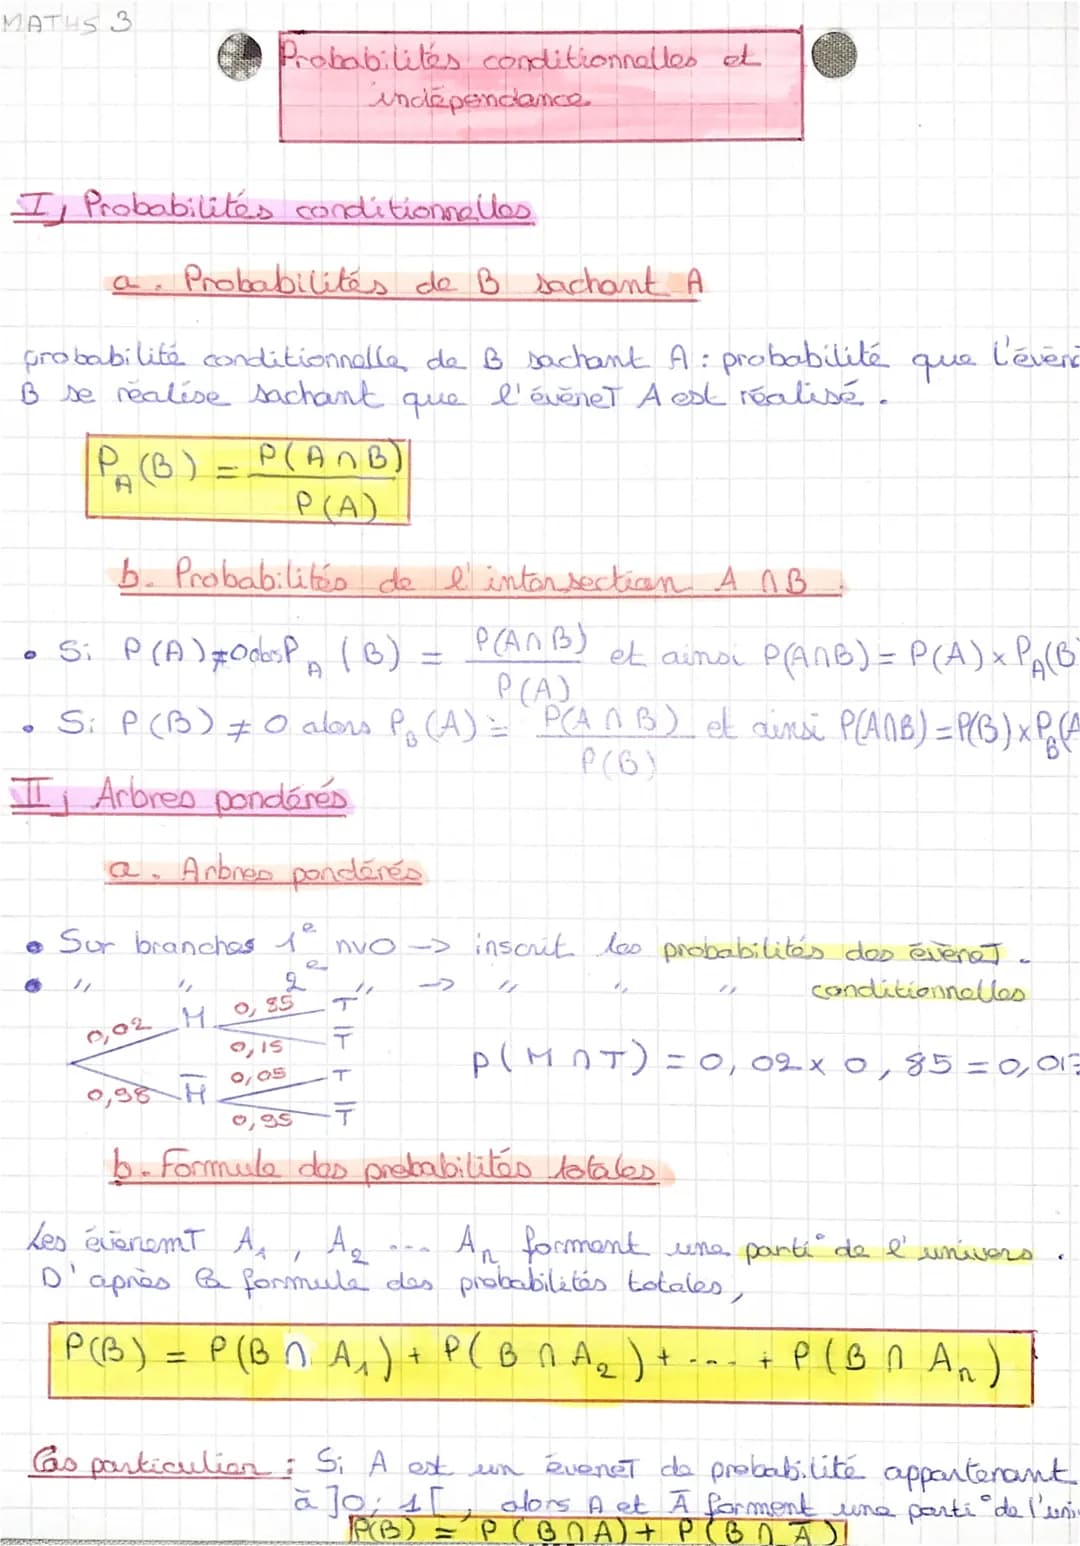 MATHS 3
Probabilités conditionnelles et
indépendance
I, Probabilités conditionnelles
a. Probabilités de B sachant A
probabilité conditionnelle de B sachant A : probabilité que l'évène
B se réalise sachant que l'évèneT A est réalisé.
P_A(B) = P(A∩B) / P(A)
b. Probabilités de l'intersection A ∩ B.
• Si P(A) ≠ 0 alors P_A(B) = P(A∩B) / P(A) et ainsi P(A∩B) = P(A) × P_A(B
• Si P(B) ≠ 0 alors P_B(A) = P(A∩B) / P(B) et ainsi P(A∩B) = P(B) × P_B(A
II, Arbres pondérés
a. Arbres pondérés
• Sur branches 1e nvo -> inscrit les probabilités des évèneT.
• " " 2e " -> " " " conditionnelles
0,02 M 0,85 T
0,15 T̅
0,98 M̅ 0,05 T
0,95 T̅
P(M∩T) = 0,02 × 0,85 = 0,017
b. Formule des probabilités totales
Les évènemT A₁, A₂ ... Aₙ forment une parti° de l'univers.
D'après la formule des probabilités totales,
P(B) = P(B∩A₁) + P(B∩A₂) + ... + P(B∩Aₙ)
Cas particulier : Si A est un évèneT de probabilité appartenant
à ]0;1[, alors A et A̅ forment une parti° de l'uni
P(B) = P(B∩A) + P(B∩A̅)